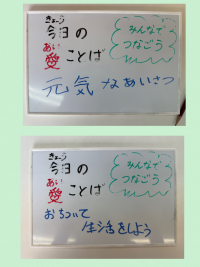 きょう
今日の
あい
愛ことば
みんなで
つなごう
元気なあいさつ
きょう
今日の
あい
愛ことば
みんなで
つなごう
おちついて
生活をしよう